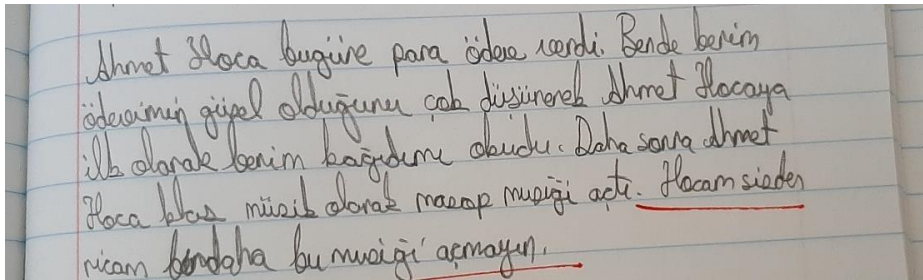 Ahmet Hoca bugüne para ödevi verdi. Bende benim
ödevimin güzel olduğunu çok düşünerek Ahmet Hocaya
ilk olarak benim kağıdımı okudu. Daha sonra Ahmet
Hoca klas müzik olarak masap musiği açtı. Hocam sizden
ricam bundaha bu musiği açmayın.